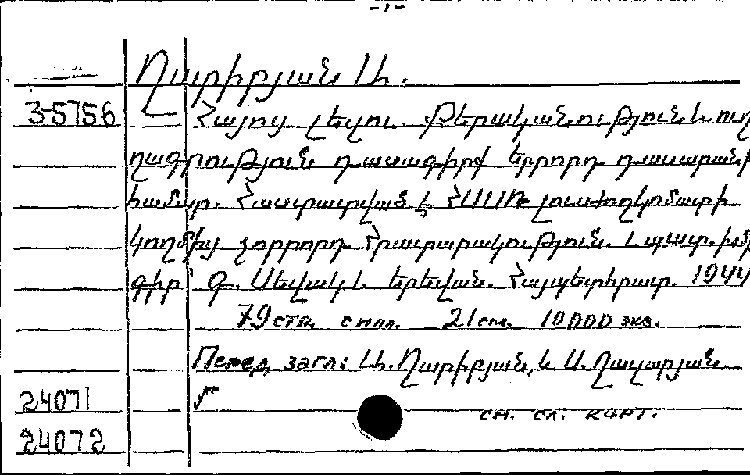 -1-
Ղարիբյան Ա.
3-5756 Հայոց լեզու. Քերականություն և ուղ
ղագրություն դասագիրք երրորդ դասարանի
համար. Հաստատված է ՀՍՍՌ լուսժողկոմատի
կողմից չորրորդ հրատարակություն. պատ. խմ
գիր՝ Գ. Սևակ. Երևան. Հայպետհրատ. 1944
79 стр. с илл. 21 см. 10000 экз.
Перед загл: Ա. Ղարիբյան և Ս. Ղազարյան
24071
см. сл. карт.
24072